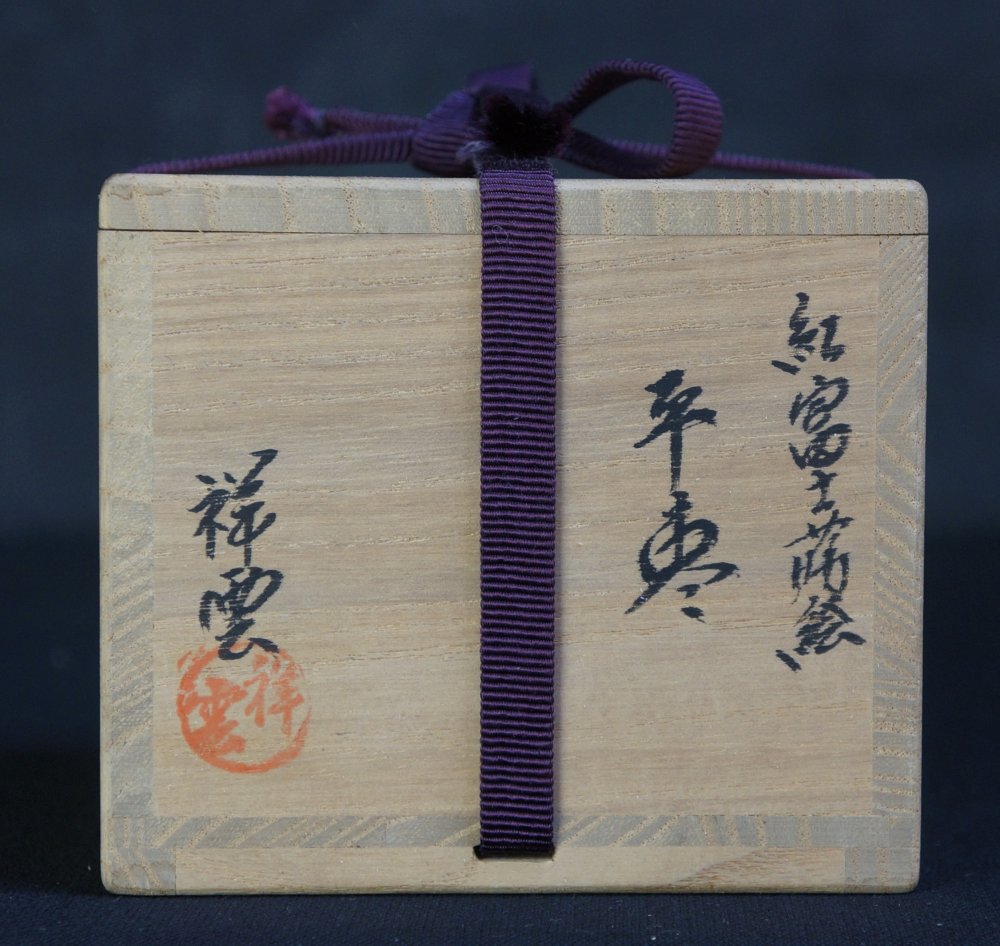 紅富士蒔絵
平棗
祥雲
祥雲